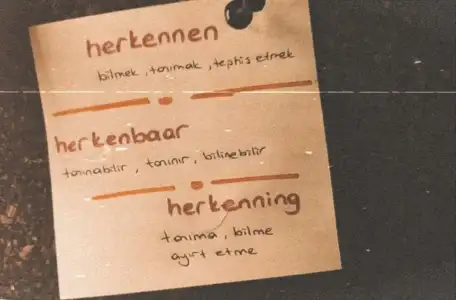 herkennen
bilmek, tanımak, teşhis etmek
herkenbaar
tanınabilir, tanınır, bilinebilir
herkenning
tanıma, bilme
ayırt etme